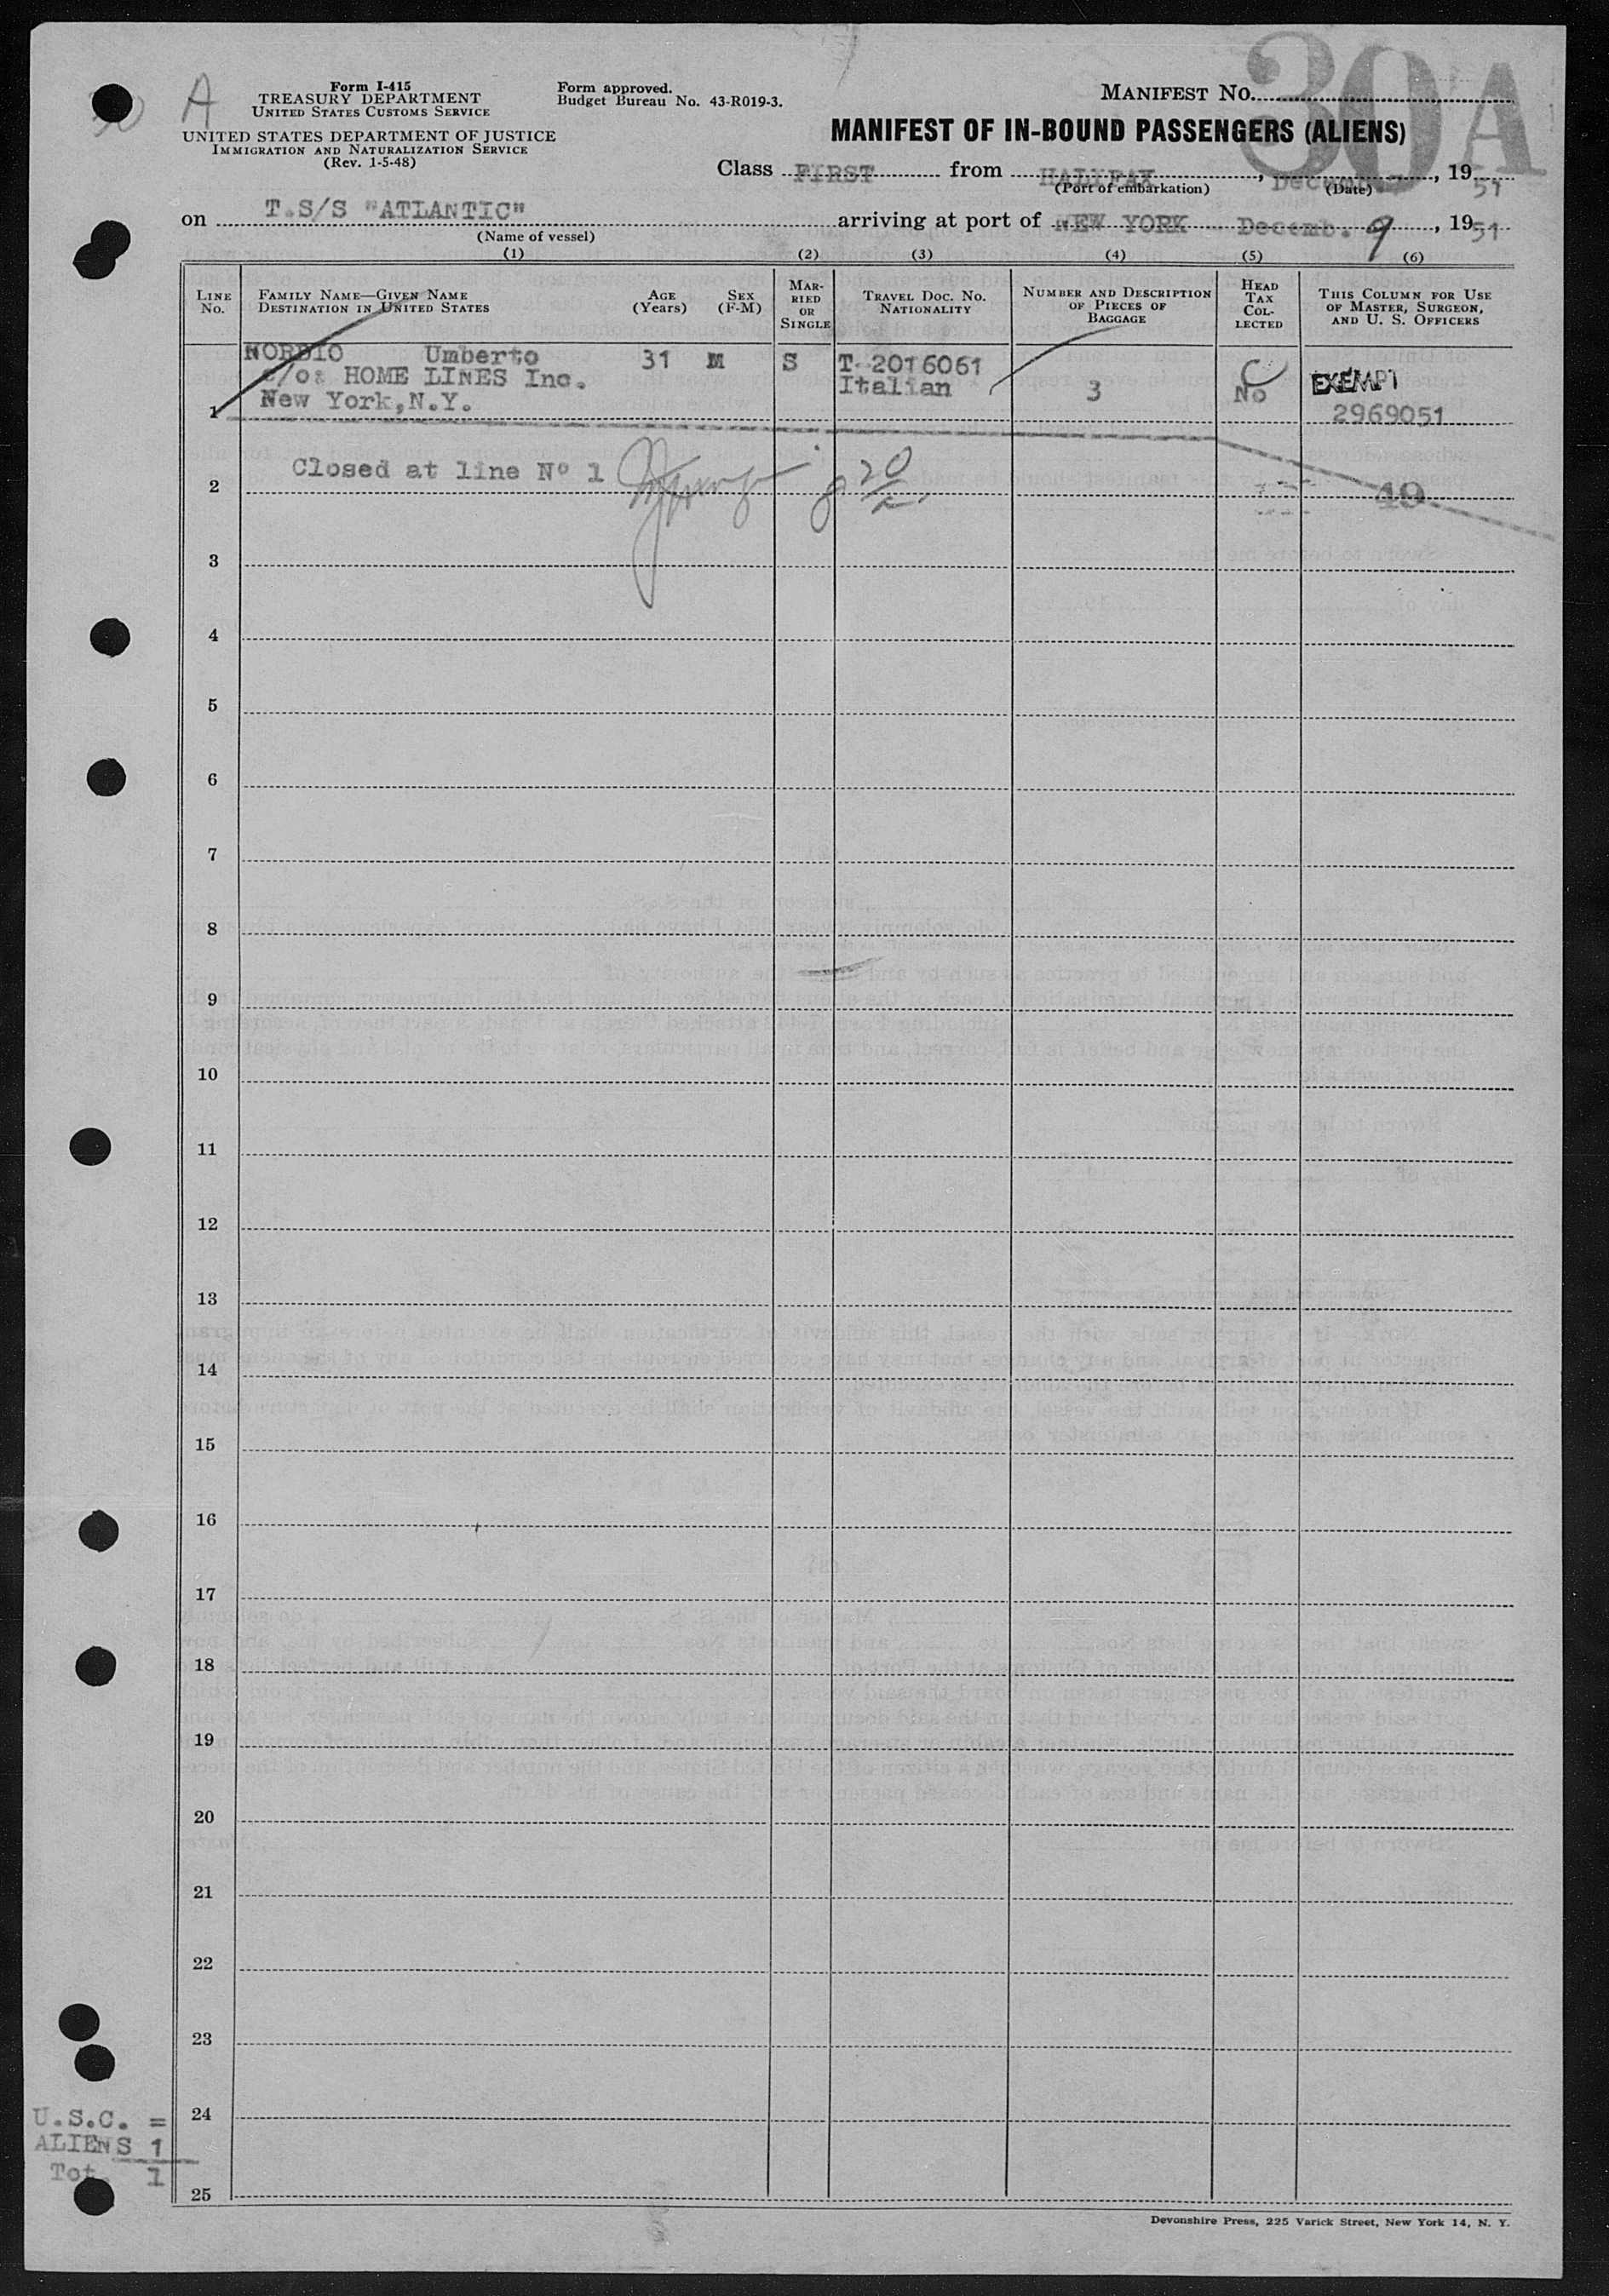 30 A
Form I-415
TREASURY DEPARTMENT
UNITED STATES CUSTOMS SERVICE
UNITED STATES DEPARTMENT OF JUSTICE
IMMIGRATION AND NATURALIZATION SERVICE
(Rev. 1-5-48)
Form approved.
Budget Bureau No. 43-R019-3.
MANIFEST NO.
30A
MANIFEST OF IN-BOUND PASSENGERS (ALIENS)
Class FIRST from HALIFAX, Decemb. 7, 1951
(Port of embarkation) (Date)
on T.S/S "ATLANTIC" arriving at port of NEW YORK - Decemb. 9, 1951
(Name of vessel)
(1) (2) (3) (4) (5) (6)
LINE NO.
FAMILY NAME—GIVEN NAME
DESTINATION IN UNITED STATES
AGE (Years)
SEX (F-M)
MARRIED OR SINGLE
TRAVEL DOC. NO.
NATIONALITY
NUMBER AND DESCRIPTION OF PIECES OF BAGGAGE
HEAD TAX COLLECTED
THIS COLUMN FOR USE OF MASTER, SURGEON, AND U. S. OFFICERS
NORDIO Umberto 31 M S T-2016061
c/o: HOME LINES Inc. Italian 3 No EXEMPT
1 New York, N.Y. 2969051
Closed at line Nº 1
2 49
3
4
5
6
7
8
9
10
11
12
13
14
15
16
17
18
19
20
21
22
23
24
25
U.S.C. =
ALIENS 1
Tot. 1
Devonshire Press, 225 Varick Street, New York 14, N. Y.